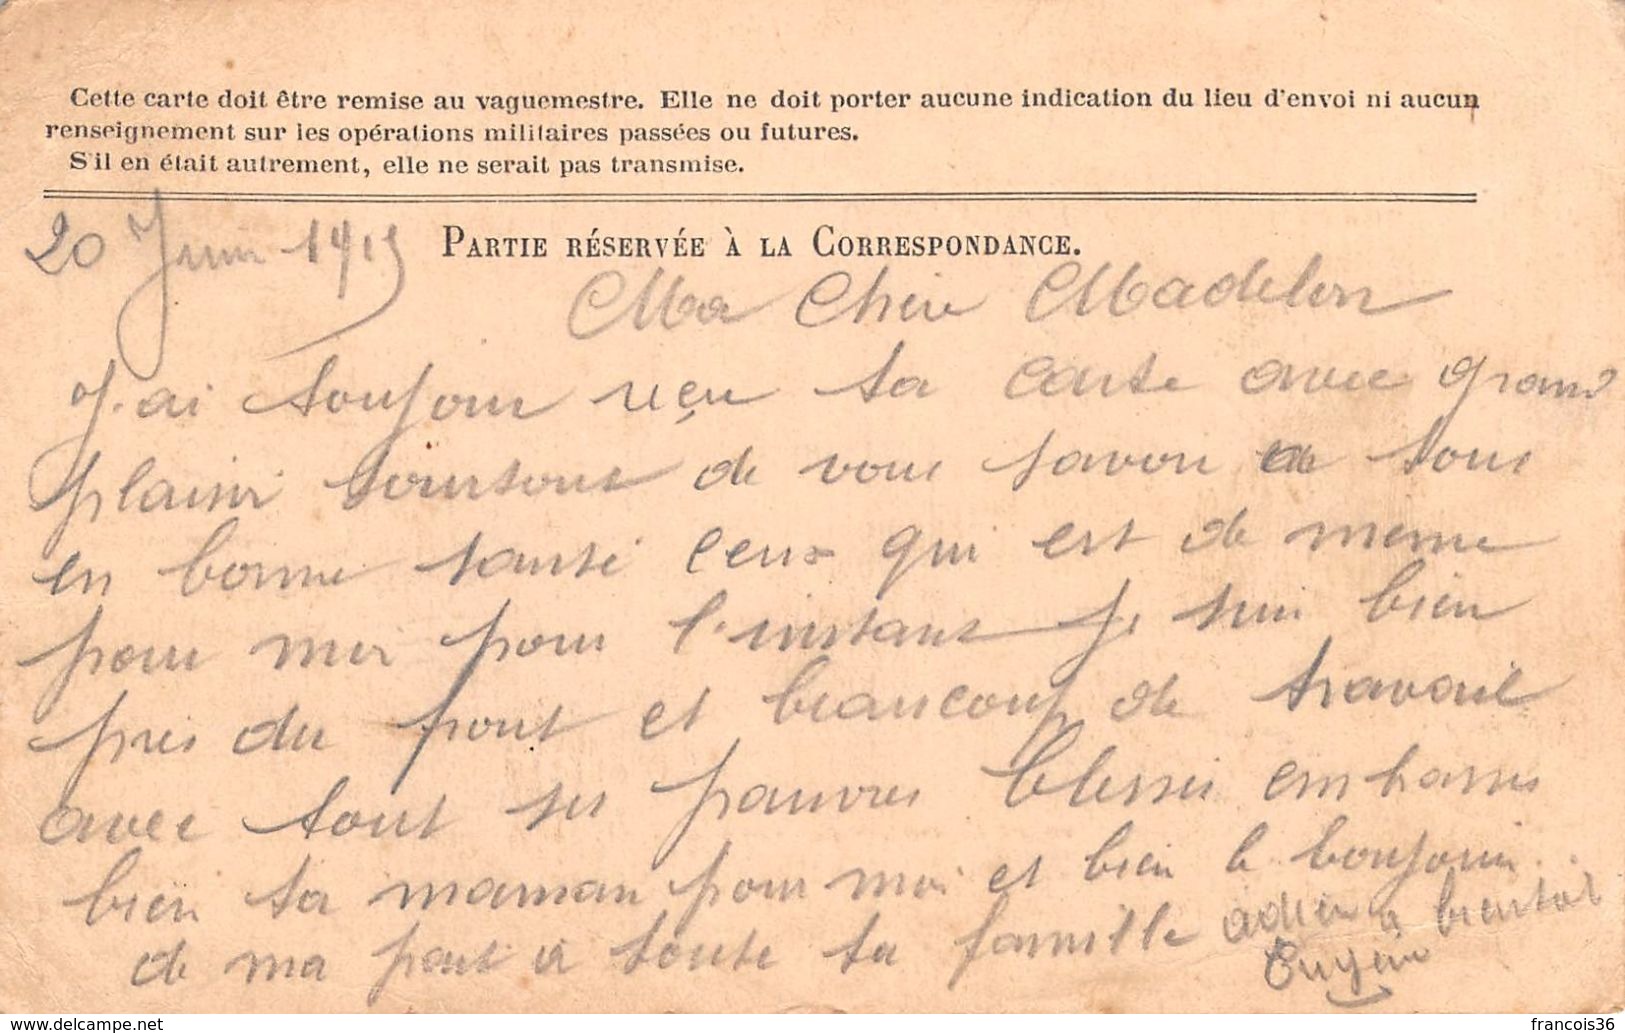 Cette carte doit être remise au vaguemestre. Elle ne doit porter aucune indication du lieu d'envoi ni aucun
renseignement sur les opérations militaires passées ou futures.
S'il en était autrement, elle ne serait pas transmise.
20 Juin 1915
PARTIE RÉSERVÉE À LA CORRESPONDANCE.
Ma Chère Madelon
J'ai toujour reçu ta carte avec grand
plaisir surtout de vous savoir tous
en bonne santé ceux qui est de meme
pour moi pour l'instant je suis bien
près du front et beaucoup de travail
avec tout ses pauvres blessés embrasse
bien ta maman pour moi et bien le bonjour
de ma part à toute ta famille adieu à bientot
Eugène
www.delcampe.net
francois36